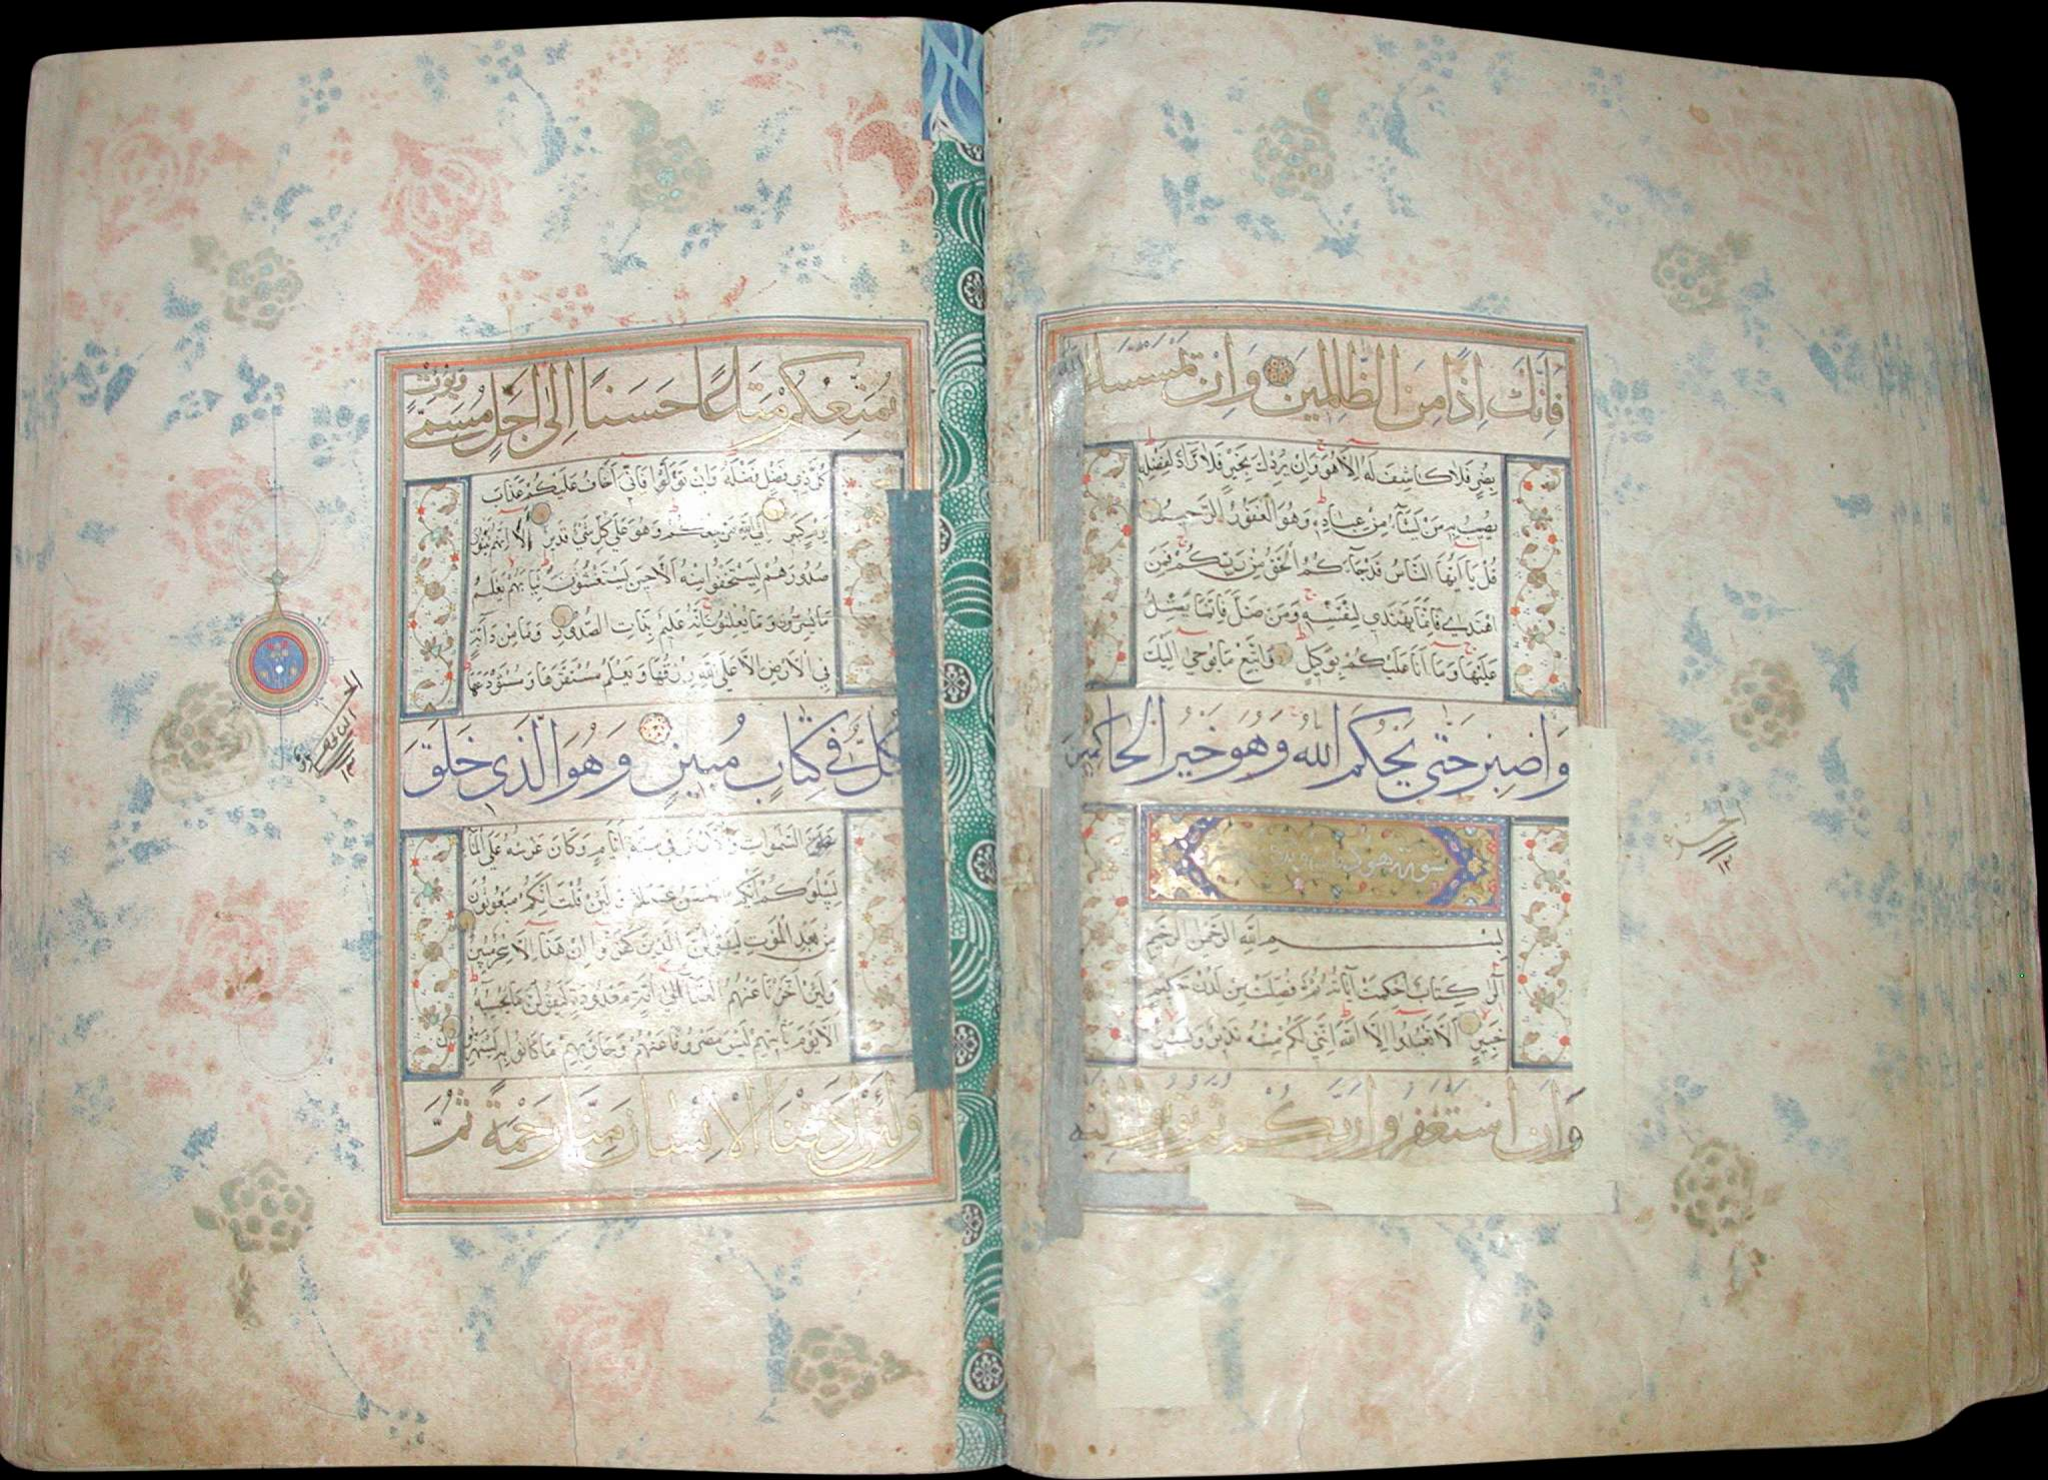 فَإِنَّكَ إِذًا مِنَ الظَّالِمِينَ وَإِنْ يَمْسَسْكَ اللَّهُ
بِضُرٍّ فَلَا كَاشِفَ لَهُ إِلَّا هُوَ وَإِنْ يُرِدْكَ بِخَيْرٍ فَلَا رَادَّ لِفَضْلِهِ
يُصِيبُ بِهِ مَنْ يَشَاءُ مِنْ عِبَادِهِ وَهُوَ الْغَفُورُ الرَّحِيمُ
قُلْ يَا أَيُّهَا النَّاسُ قَدْ جَاءَكُمُ الْحَقُّ مِنْ رَبِّكُمْ فَمَنِ
اهْتَدَى فَإِنَّمَا يَهْتَدِي لِنَفْسِهِ وَمَنْ ضَلَّ فَإِنَّمَا يَضِلُّ
عَلَيْهَا وَمَا أَنَا عَلَيْكُمْ بِوَكِيلٍ وَاتَّبِعْ مَا يُوحَى إِلَيْكَ
وَاصْبِرْ حَتَّى يَحْكُمَ اللَّهُ وَهُوَ خَيْرُ الْحَاكِمِينَ
سورة هود
بِسْمِ اللَّهِ الرَّحْمَنِ الرَّحِيمِ
الر كِتَابٌ أُحْكِمَتْ آيَاتُهُ ثُمَّ فُصِّلَتْ مِنْ لَدُنْ حَكِيمٍ
خَبِيرٍ أَلَّا تَعْبُدُوا إِلَّا اللَّهَ إِنَّنِي لَكُمْ مِنْهُ نَذِيرٌ وَبَشِيرٌ
وَأَنِ اسْتَغْفِرُوا رَبَّكُمْ ثُمَّ تُوبُوا إِلَيْهِ
يُمَتِّعْكُمْ مَتَاعًا حَسَنًا إِلَى أَجَلٍ مُسَمًّى وَيُؤْتِ
كُلَّ ذِي فَضْلٍ فَضْلَهُ وَإِنْ تَوَلَّوْا فَإِنِّي أَخَافُ عَلَيْكُمْ عَذَابَ
يَوْمٍ كَبِيرٍ إِلَى اللَّهِ مَرْجِعُكُمْ وَهُوَ عَلَى كُلِّ شَيْءٍ قَدِيرٌ أَلَا إِنَّهُمْ يَثْنُونَ
صُدُورَهُمْ لِيَسْتَخْفُوا مِنْهُ أَلَا حِينَ يَسْتَغْشُونَ ثِيَابَهُمْ يَعْلَمُ
مَا يُسِرُّونَ وَمَا يُعْلِنُونَ إِنَّهُ عَلِيمٌ بِذَاتِ الصُّدُورِ وَمَا مِنْ دَابَّةٍ
فِي الْأَرْضِ إِلَّا عَلَى اللَّهِ رِزْقُهَا وَيَعْلَمُ مُسْتَقَرَّهَا وَمُسْتَوْدَعَهَا
كُلٌّ فِي كِتَابٍ مُبِينٍ وَهُوَ الَّذِي خَلَقَ
السَّمَوَاتِ وَالْأَرْضَ فِي سِتَّةِ أَيَّامٍ وَكَانَ عَرْشُهُ عَلَى الْمَاءِ
لِيَبْلُوَكُمْ أَيُّكُمْ أَحْسَنُ عَمَلًا وَلَئِنْ قُلْتَ إِنَّكُمْ مَبْعُوثُونَ
مِنْ بَعْدِ الْمَوْتِ لَيَقُولَنَّ الَّذِينَ كَفَرُوا إِنْ هَذَا إِلَّا سِحْرٌ مُبِينٌ
وَلَئِنْ أَخَّرْنَا عَنْهُمُ الْعَذَابَ إِلَى أُمَّةٍ مَعْدُودَةٍ لَيَقُولُنَّ مَا يَحْبِسُهُ
أَلَا يَوْمَ يَأْتِيهِمْ لَيْسَ مَصْرُوفًا عَنْهُمْ وَحَاقَ بِهِمْ مَا كَانُوا بِهِ يَسْتَهْزِؤُنَ
وَلَئِنْ أَذَقْنَا الْإِنْسَانَ مِنَّا رَحْمَةً ثُمَّ